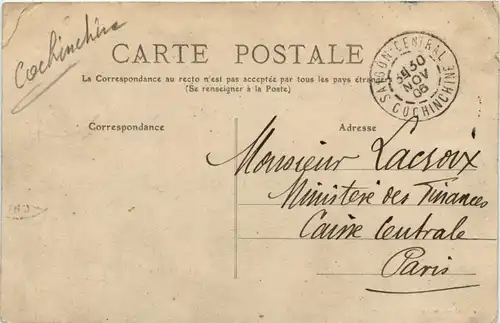 Cochinchine
CARTE POSTALE
La Correspondance au recto n'est pas acceptée par tous les pays étrangers
(Se renseigner à la Poste)
SAIGON-CENTRAL
30
NOV
06
COCHINCHINE
Correspondance
Adresse
Monsieur Lacroix
Ministère des Finances
Caisse Centrale
Paris